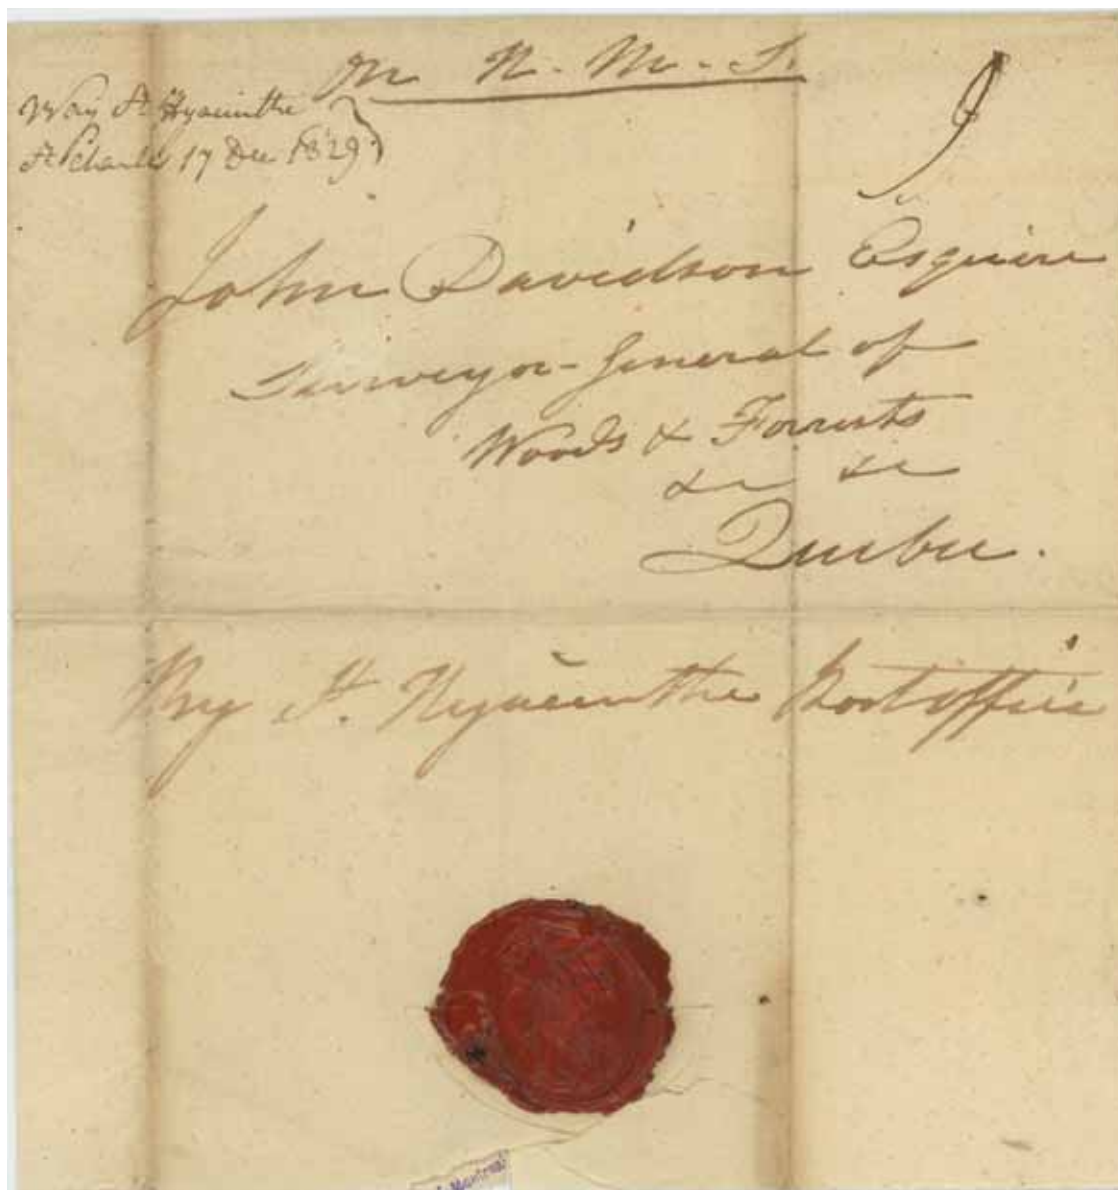 On H. M. S.
Way St Hyacinthe
St Charles 17 Dec 1829
John Davidson Esquire
Surveyor-General of
Woods & Forrests
&c &c
Quebec.
By St. Hyacinthe Postoffice
Montreal